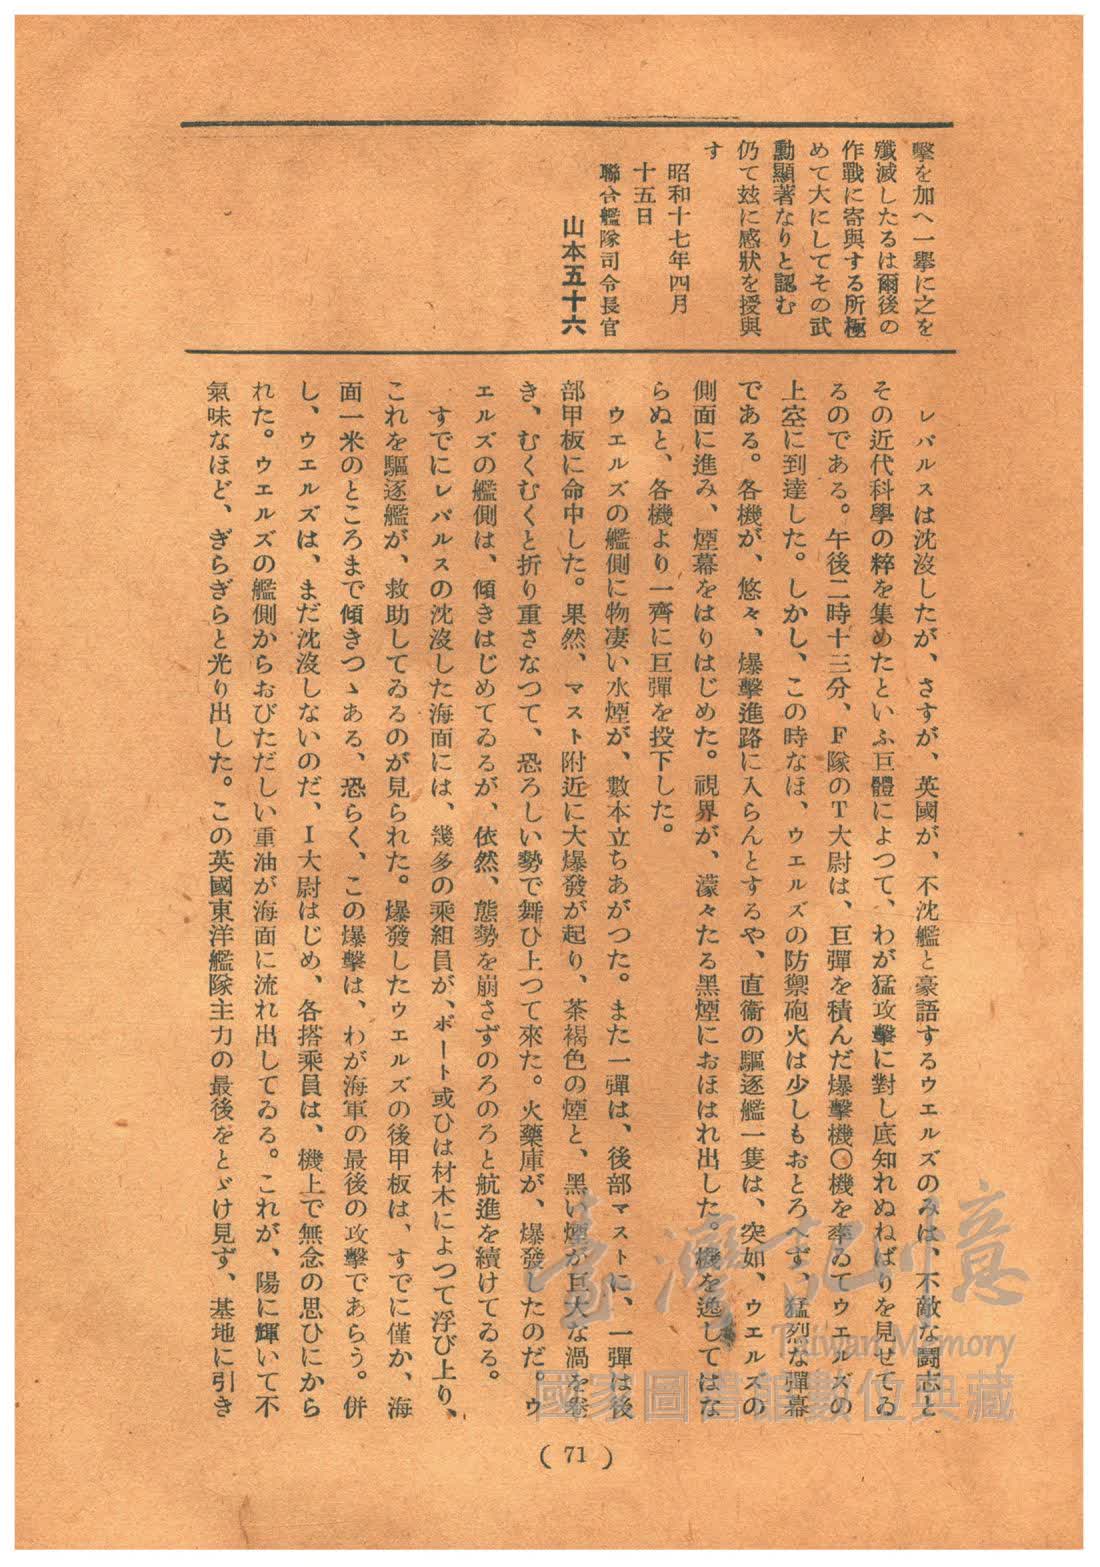 擊を加へ一擧に之を
殲滅したるは爾後の
作戰に寄與する所極
めて大にしてその武
勳顯著なりと認む
仍て玆に感狀を授與
す
昭和十七年四月
十五日
聯合艦隊司令長官
山本五十六
レパルスは沈沒したが、さすが、英國が、不沈艦と豪語するウエルズのみは、不敵な鬪志と
その近代科學の粹を集めたといふ巨體によつて、わが猛攻擊に對し底知れぬねばりを見せてゐ
るのである。午後二時十三分、F隊のT大尉は、巨彈を積んだ爆擊機〇機を率ゐてウエルズの
上空に到達した。しかし、この時なほ、ウエルズの防禦砲火は少しもおとろへず、猛烈な彈幕
である。各機が、悠々、爆擊進路に入らんとするや、直衞の驅逐艦一隻は、突如、ウエルズの
側面に進み、煙幕をはりはじめた。視界が、濛々たる黑煙におほはれ出した。機を逸してはな
らぬと、各機より一齊に巨彈を投下した。
ウエルズの艦側に物凄い水煙が、數本立ちあがつた。また一彈は、後部マストに、一彈は後
部甲板に命中した。果然、マスト附近に大爆發が起り、茶褐色の煙と、黑い煙が巨大な渦を卷
き、むくむくと折り重さなつて、恐ろしい勢で舞ひ上つて來た。火藥庫が、爆發したのだ。ウ
エルズの艦側は、傾きはじめてるるが、依然、態勢を崩さずのろのろと航進を續けてゐる。
すでにレパルスの沈沒した海面には、幾多の乘組員が、ボート或ひは材木によつて浮び上り、
これを驅逐艦が、救助してゐるのが見られた。爆發したウエルズの後甲板は、すでに僅か、海
面一米のところまで傾きつゝある、恐らく、この爆擊は、わが海軍の最後の攻擊であらう。併
し、ウエルズは、まだ沈沒しないのだ、I大尉はじめ、各搭乘員は、機上で無念の思ひにから
れた。ウエルズの艦側からおびただしい重油が海面に流れ出してゐる。これが、陽に輝いて不
氣味なほど、ぎらぎらと光り出した。この英國東洋艦隊主力の最後をとゞけ見ず、基地に引き
(71)
臺灣記憶
Taiwan Memory
國家圖書館數位典藏